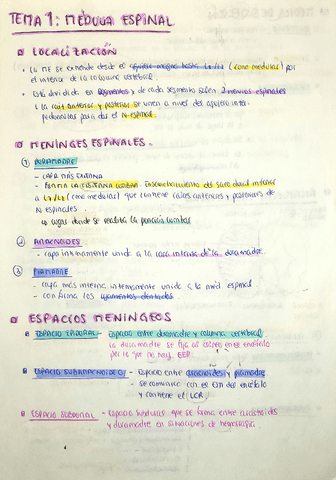 TEMA 1: MÉDULA ESPINAL
LOCALIZACIÓN
- La ME se extiende desde el agujero magno hasta L1/L2 (cono medular) por
el interior de la columna vertebral.
- Está dividida en segmentos y de cada segmento salen 2 nervios espinales
↳ la raíz anterior y posterior se unen a nivel del agujero inter-
para dar el N. espinal
MENINGES ESPINALES.
1 DURAMADRE
- CAPA MÁS EXTERNA
- FORMA LA CISTERNA LUMBAR. Ensanchamiento del saco dural inferior
a L1/L2 (cono medular) que contiene raíces anteriores y posteriores de
N. espinales.
↳ lugar donde se realiza la punción lumbar
2 ARACNOIDES
- capa íntimamente unida a la cara interna de la duramadre.
3 PIAMADRE
- capa más interna, íntimamente unida a la med espinal
- conforma los ligamentos dentados
ESPACIOS MENINGEOS
ESPACIO EPIDURAL - espacio entre duramadre y columna vertebral
la duramadre se fija al cráneo en el encéfalo
por lo que no hay EEP.
ESPACIO SUBARACNOIDEO - espacio entre aracnoides y piamadre
- se comunica con el ESA del encéfalo
y contiene el LCR.
ESPACIO SUBDURAL - Espacio que se forma entre aracnoides
y duramadre en situaciones de hemorragia.